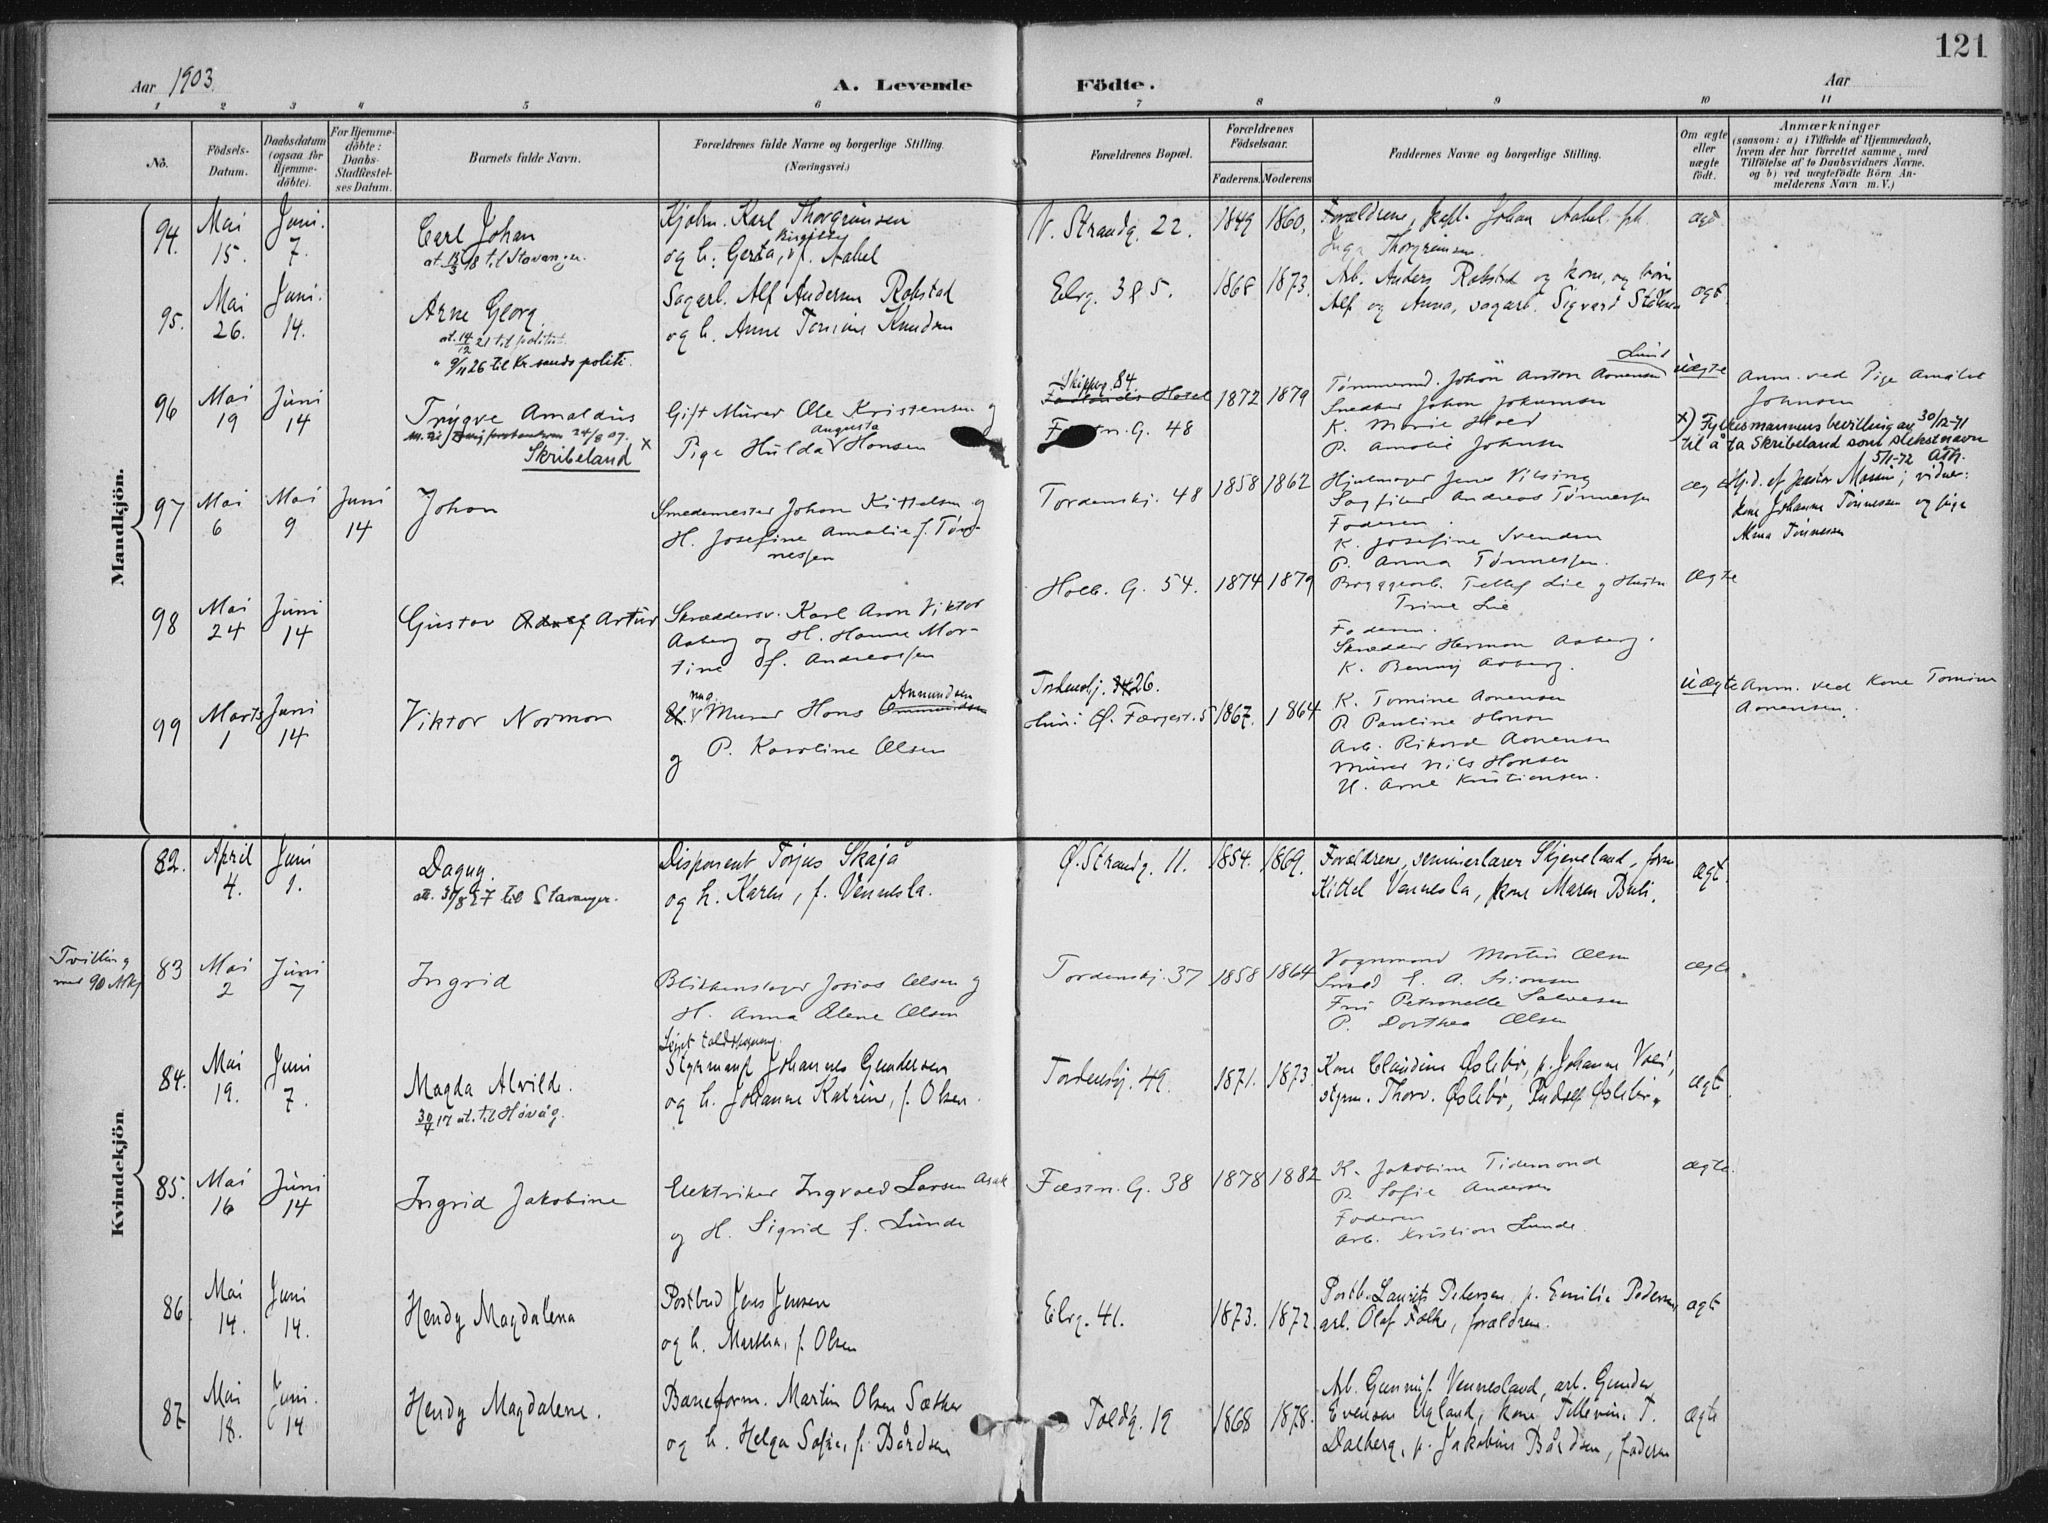 121
Aar 1903.
A. Levende Födte.
Aar
1 2 3 4 5 6 7 8 9 10 11
No.
Födsels-Datum.
Daabsdatum (ogsaa for Hjemme-döbte).
For Hjemme-döbte: Daabs-Stadfæstel-ses Datum.
Barnets fulde Navn.
Forældrenes fulde Navne og borgerlige Stilling. (Næringsvei.)
Forældrenes Bopæl.
Forældrenes Födselsaar.
Faderens. Moderens
Faddernes Navne og borgerlige Stilling.
Om ægte eller uægte födt.
Anmærkninger
(saasom: a) i Tilfælde af Hjemmedaab, hvem der har forrettet samme, med Tilföielse af to Daabsvidners Navne, og b) ved uægtefödte Börn An-melderens Navn m. V.)
Mandkjön.
94. Mai 15. Juni. 7.
Carl Johan
at. 13/3 18 til Stavanger.
Kjøbm. Karl Thorgrimsen
og h. Gerta, f. Aabel
V. Strandg. 22. 1849 1860.
Forældrene, kapt. Johan Aabel, frk.
Inga Thorgrimsen.
ægt
95. Mai 26. Juni. 14.
Arne Georg
at. 14/12 21 til politet.
" 9/11 26 til Kr.sands politi.
Sagarb. Alf Andersen Robstad
og h. Anne Tomine Knudsen
Elvg. 38 5. 1868 1873.
Arb. Anders Robstad og kone, og børn
Alf og Anna, sagarb. Sigvard
ægt.
96 Mai 19 Juni 14
Trygve Arnaldus
24/8 07.
Skribeland x
Gift Murer Ole Kristensen og
Augusta
Pige Hulda Hansen
Skipperg. 84.
Fæstn. G. 48
1872 1879
Lund
Tømmermd. Johan Anton Aanensen
Snedker Johan Jokumsen
K. Marie Hoed
P. Amalie Johnsen
uægte
Anm. ved Pige Amalie
Johnsen
x) Fylkesmannens bevilling av 30/12-71
til å ta Skribeland som slektsnavn
5/1-72
97 Mai 6 Mai 9 Juni 14
Johan
Smedemester Johan Kittelsen og
H. Josefine Amalie f. Tøn-
nessen
Tordenskj. 48 1858 1862
Hjulmager Jens Vilsing
Sagfiler Andreas Tønnessen
Faderen
K. Josefine Svendsen
P. Anna Tønnessen.
ægte
Hjd. af pastor Mossin; vidner:
kone Johanne Tønnessen og pige
Alma Tønnessen
98 Mai 24 Juni 14
Gustav Adolf Artur
Skræddersv. Karl Aron Viktor
Aaberg og H. Hanne Mar-
tine f. Andreassen
Holb. G. 54. 1874 1879
Bryggearb. Tellef Lie og Hustru
Trine Lie
Faderen.
Skrædder Herman Aaberg.
K. Benny Aaberg.
ægte
99 Marts 1 Juni 14
Viktor Norman
Murer Hans Amundsen
og P. Karoline Olsen
Tordenskj. 26.
Hun: Ø. Færgest. 5 1867. 1864
K. Tomine Aanensen
P. Pauline Hansen
Arb. Rikard Aanensen
Murer Nils Hansen
U. Arne Kristiansen.
uægte
Anm. ved Kone Tomine
Aanensen.
Kvindekjön
82. April 4. Juni 1.
Dagny.
att. 30/8 27 til Stavanger.
Disponent Torjus Skajå
og h. Karen, f. Vennesla.
Ø. Strandg. 11. 1854. 1869.
Forældrene, seminarlærer Skjeveland, frøken
Kittel Vennesla, kone Maren Buli.
ægt.
Tvilling
med 90 Mkj
83 Mai 2 Juni 7
Ingrid
Blikkenslager Josias Olsen og
H. Anna Elene Olsen
Tordenskj. 37 1858 1864
Vognmand Martin Olsen
Smed E. A. Simonsen
Fru Petronelle Salvesen
P. Dorthea Olsen
ægte
84. Mai 19. Juni 7.
Magda Alvilde.
30/4 17 at. til Høvåg.
Styrmand Johannes Gundersen
og h. Johanne Katrine, f. Olsen.
Tordenskj. 49. 1871. 1873
Kone Claudine Øslebø, p. Johanne Voei,
styrm. Thorv. Øslebø, Rudolf Øslebø.
ægt.
85. Mai 16 Juni 14
Ingrid Jakobine
Elektriker Ingvald Larsen Asak
og H. Sigrid f. Lunde
Fæstn. G. 38 1878 1882
K. Jakobine Tidemand
P. Sofie Andersen
Faderen
Arb. Kristian Lunde.
ægte.
86 Mai 14. Juni 14.
Hendy Magdalena
Postbud Jens Jensen
og h. Martha, f. Olsen
Elvg. 41. 1873. 1872.
Postb. Laurits Petersen, p. Emilie Pedersen,
arb. Olaf Falke, forældrene.
ægt
87 Mai 18. Juni. 14
Hendy Magdalene.
Baneform. Martin Olsen Sæther
og h. Helga Sofie, f. Bårdsen
Toldg. 19 1868 1878.
Arb. Gunnuf Vennesland, arb. Gunder
Evensen Ugland, kone Tellevine T.
Dalberg, p. Jakobine Bårdsen, faderen
ægte